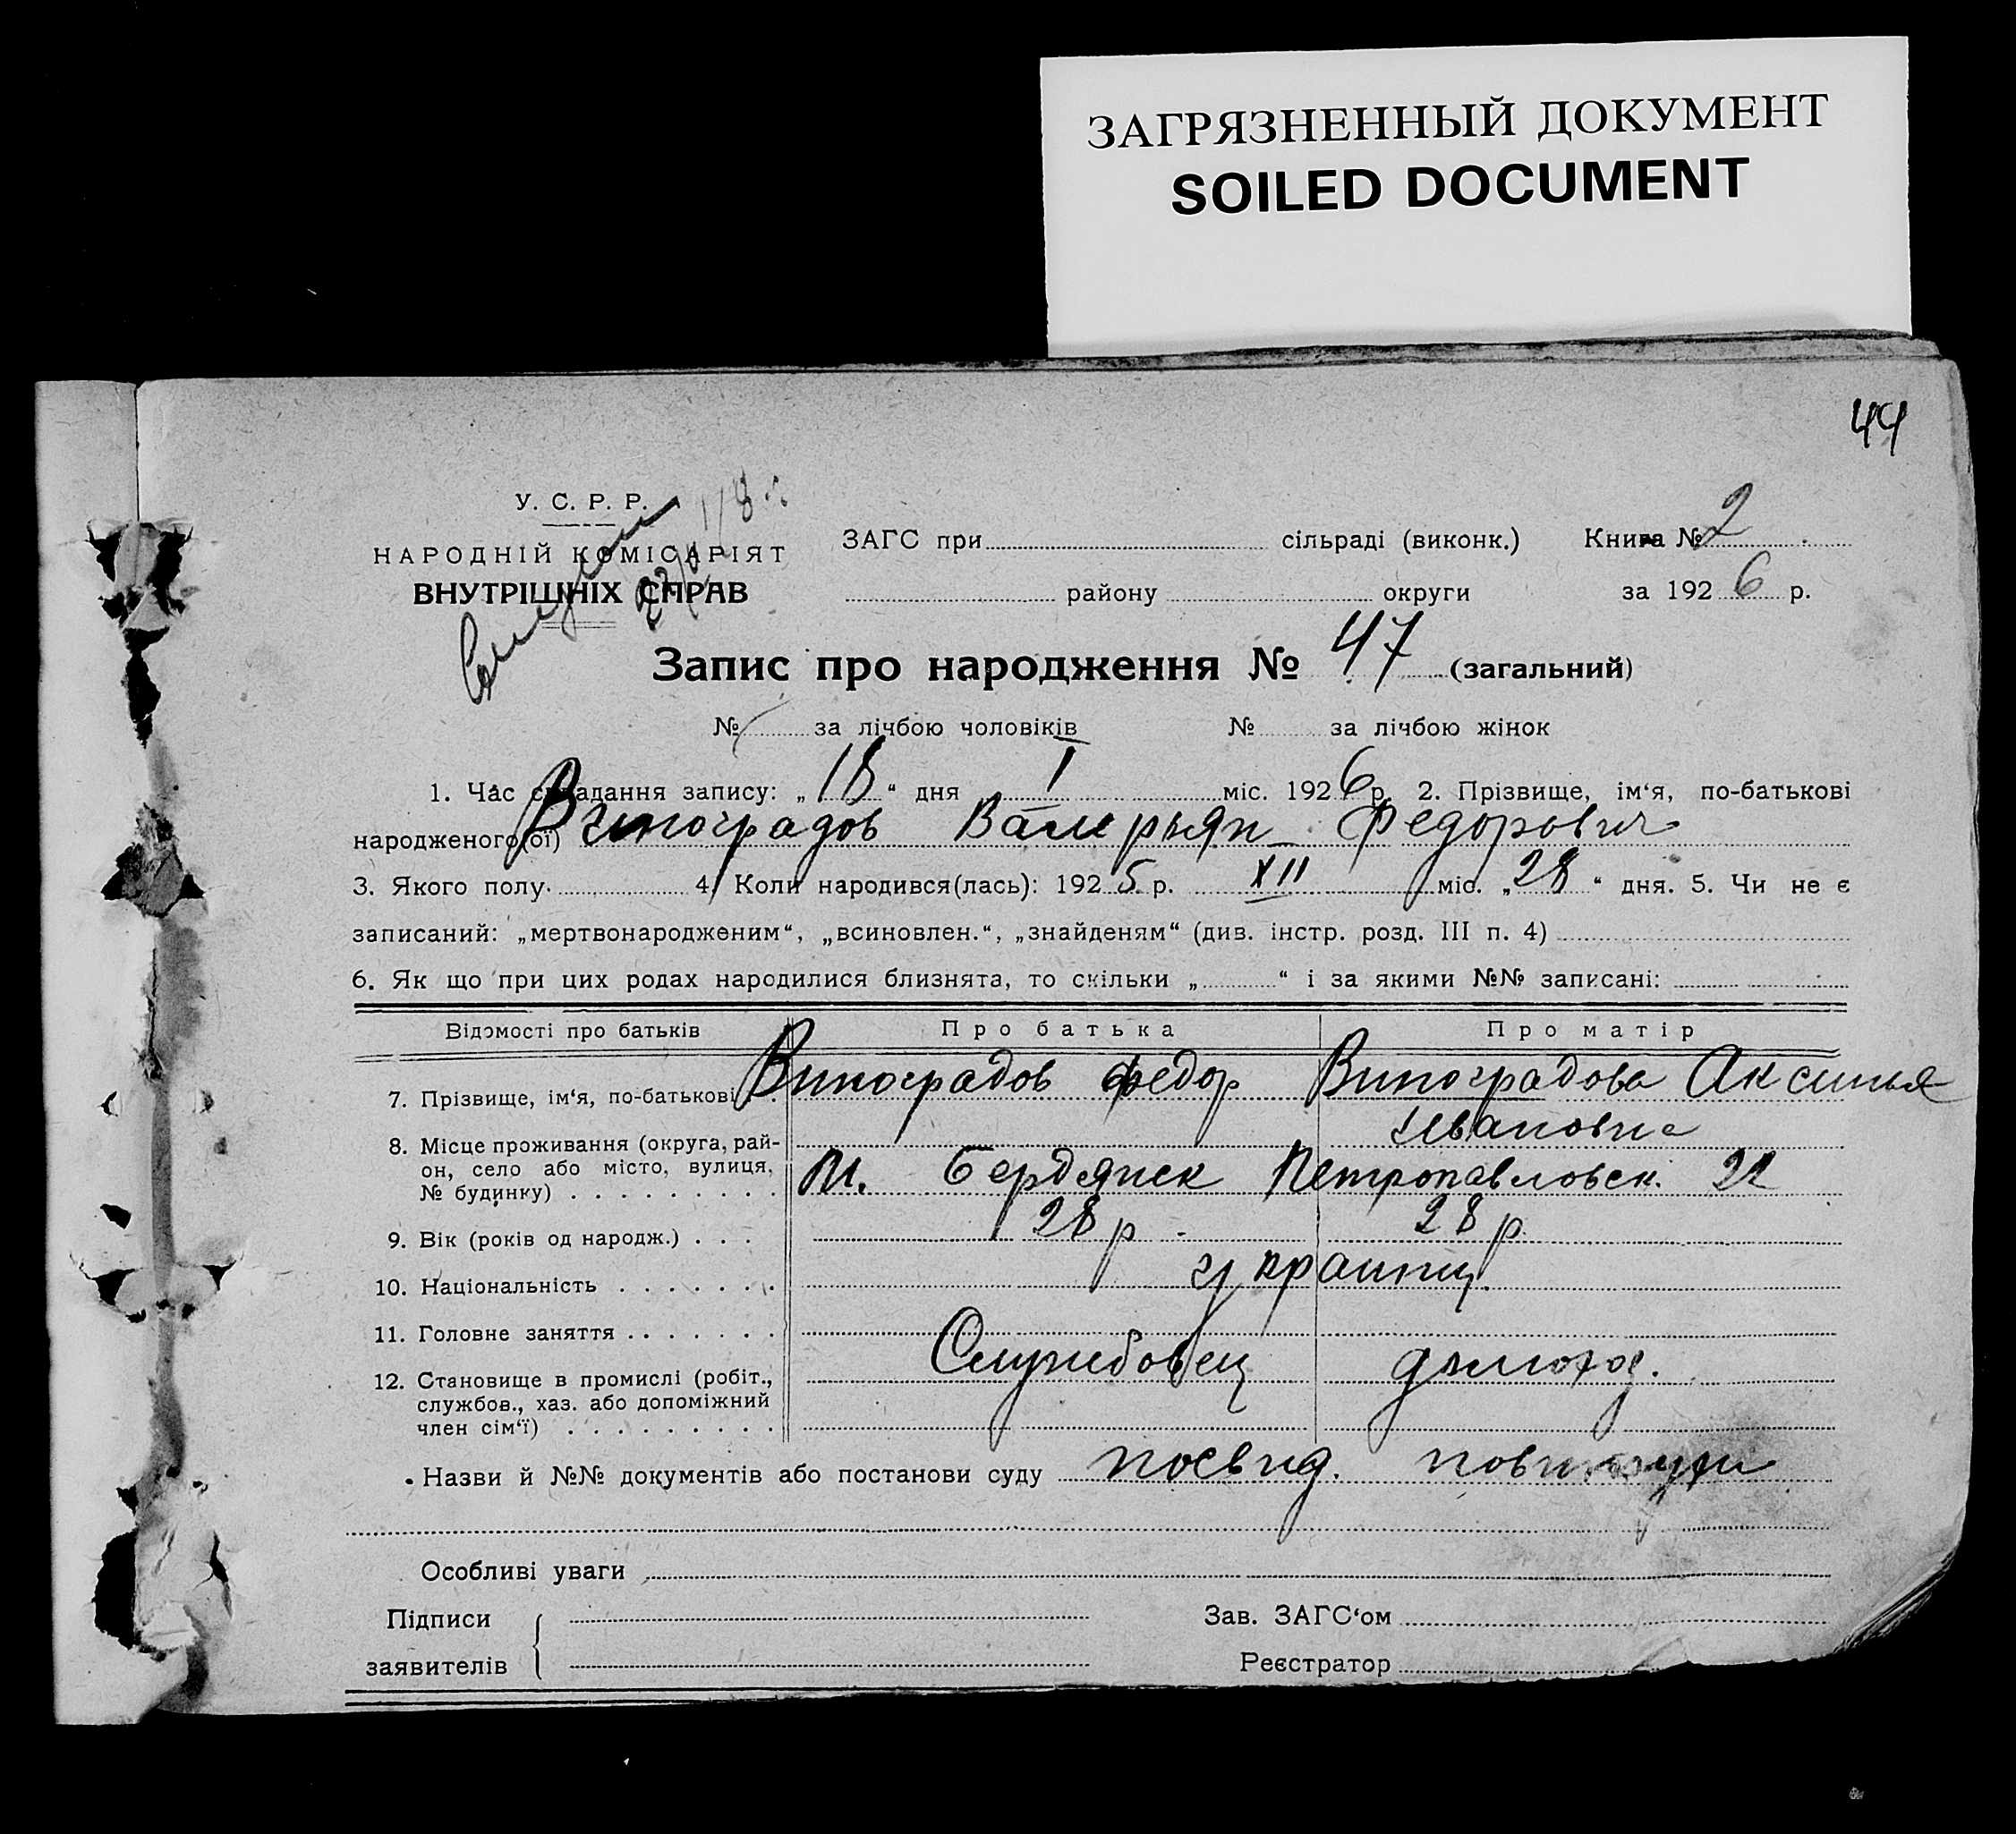 ЗАГРЯЗНЕННЫЙ ДОКУМЕНТ
SOILED DOCUMENT
44
У. С. Р. Р.
НАРОДНІЙ КОМІСАРІЯТ
ВНУТРІШНІХ СПРАВ
ЗАГС при сільраді (виконк.) Книга № 2
району округи за 1926 р.
Запис про народження № 47 (загальний)
№ за лічбою чоловіків № за лічбою жінок
1. Час складання запису: „18“ дня I міс. 1926 р. 2. Прізвище, ім‘я, по-батькові
народженого(ої) Виноградов Валерьян Федорович
3. Якого полу 4. Коли народився(лась): 1925 р. XII міс. „28“ дня. 5. Чи не є
записаний: „мертвонародженим“, „всиновлен.“, „знайденям“ (див. інстр. розд. III п. 4)
6. Як що при цих родах народилися близнята, то скільки „ “ і за якими №№ записані:
Відомості про батьків Про батька Про матір
7. Прізвище, ім‘я, по-батькові . . Виноградов Федор Виноградова Аксинья
Ивановна
8. Місце проживання (округа, рай-
он, село або місто, вулиця,
№ будинку) . . . . . . . . . м. Бердянск Петропавловск. 22
9. Вік (років од народж.) . . . 28 р. 28 р.
10. Національність . . . . . . . украинц.
11. Головне заняття . . . . . . .
12. Становище в промислі (робіт.,
службов., хаз. або допоміжний
член сім‘ї) . . . . . . . . . Службовец домохоз.
Назви й №№ документів або постанови суду посвид. повитухи
Особливі уваги
Підписи
заявителів
Зав. ЗАГС‘ом
Реєстратор